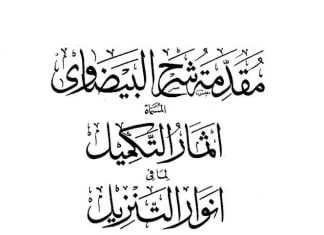 مُقَدِّمَة شَرْح البَيضَاوِى
المُسَمَّاة
اثمَارُ التَّكمِيل
لِمَا فى
انوَار التَّنزِيل